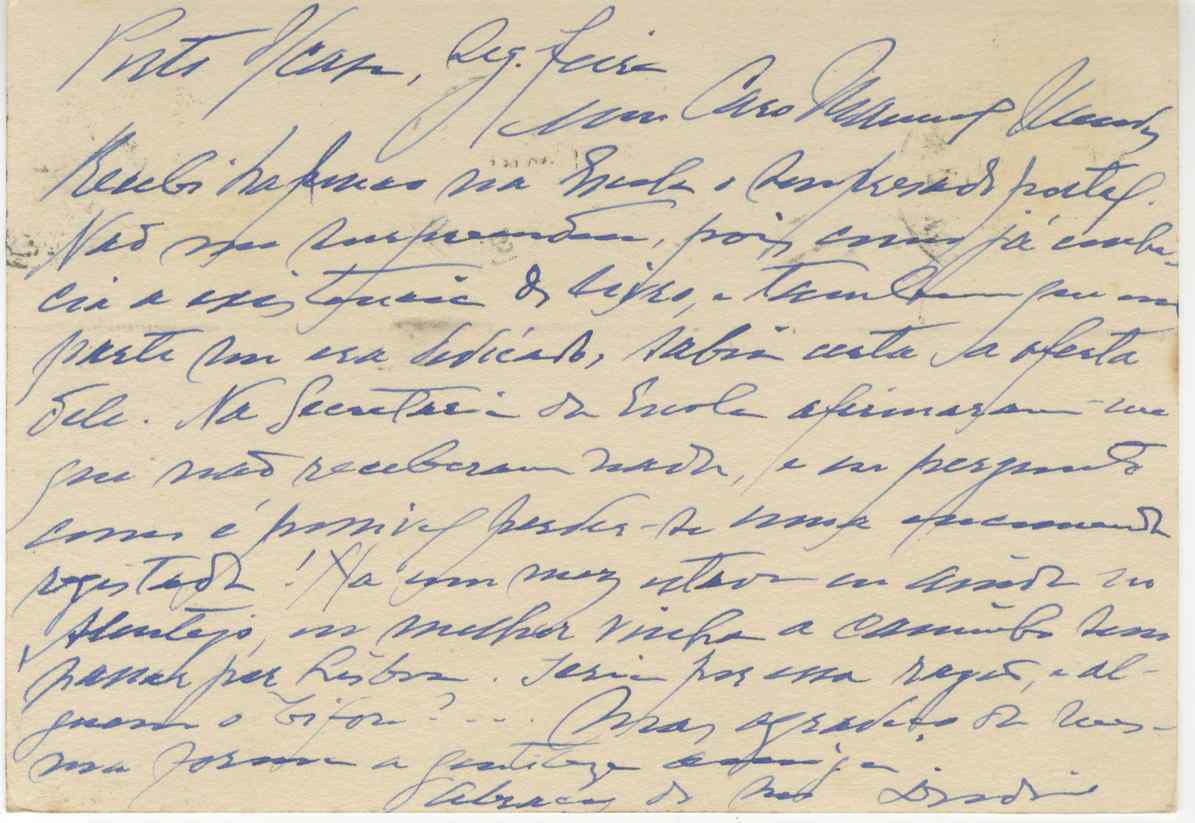 Porto, Seg. feira
Meu Caro Manuel Mendes
Recebi na Escola o seu postal.
Não me surpreendeu, pois como já conhe-
cia a existencia do livro, e tambem que em
parte me era dedicado, sabia certa a oferta
dele. Na Secretaria da Escola afirmaram-me
que não receberam nada, e eu pergunto
como é possivel perder-se uma encomenda
registada! Ha um mez estava eu ainda no
Alentejo, ou melhor vinha a caminho sem
passar por Lisboa. Seria por essa razão, e al-
guem o bifou?.... Mas agradeço da mes-
ma forma a gentileza amiga.
Abraços do seu